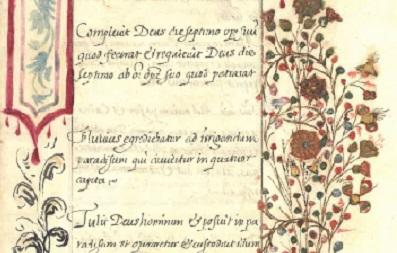 Complevit Deus die septimo opus suū
quod fecerat et requievit Deus die
septimo ab oī opē suo quod patrarat
fluvius egrediebatur ad irrigandum
paradisum qui dividitur in quatuor
capita
Tulit Deus hominem et posuit in pa
radisum ut operaretur et custodiret illum